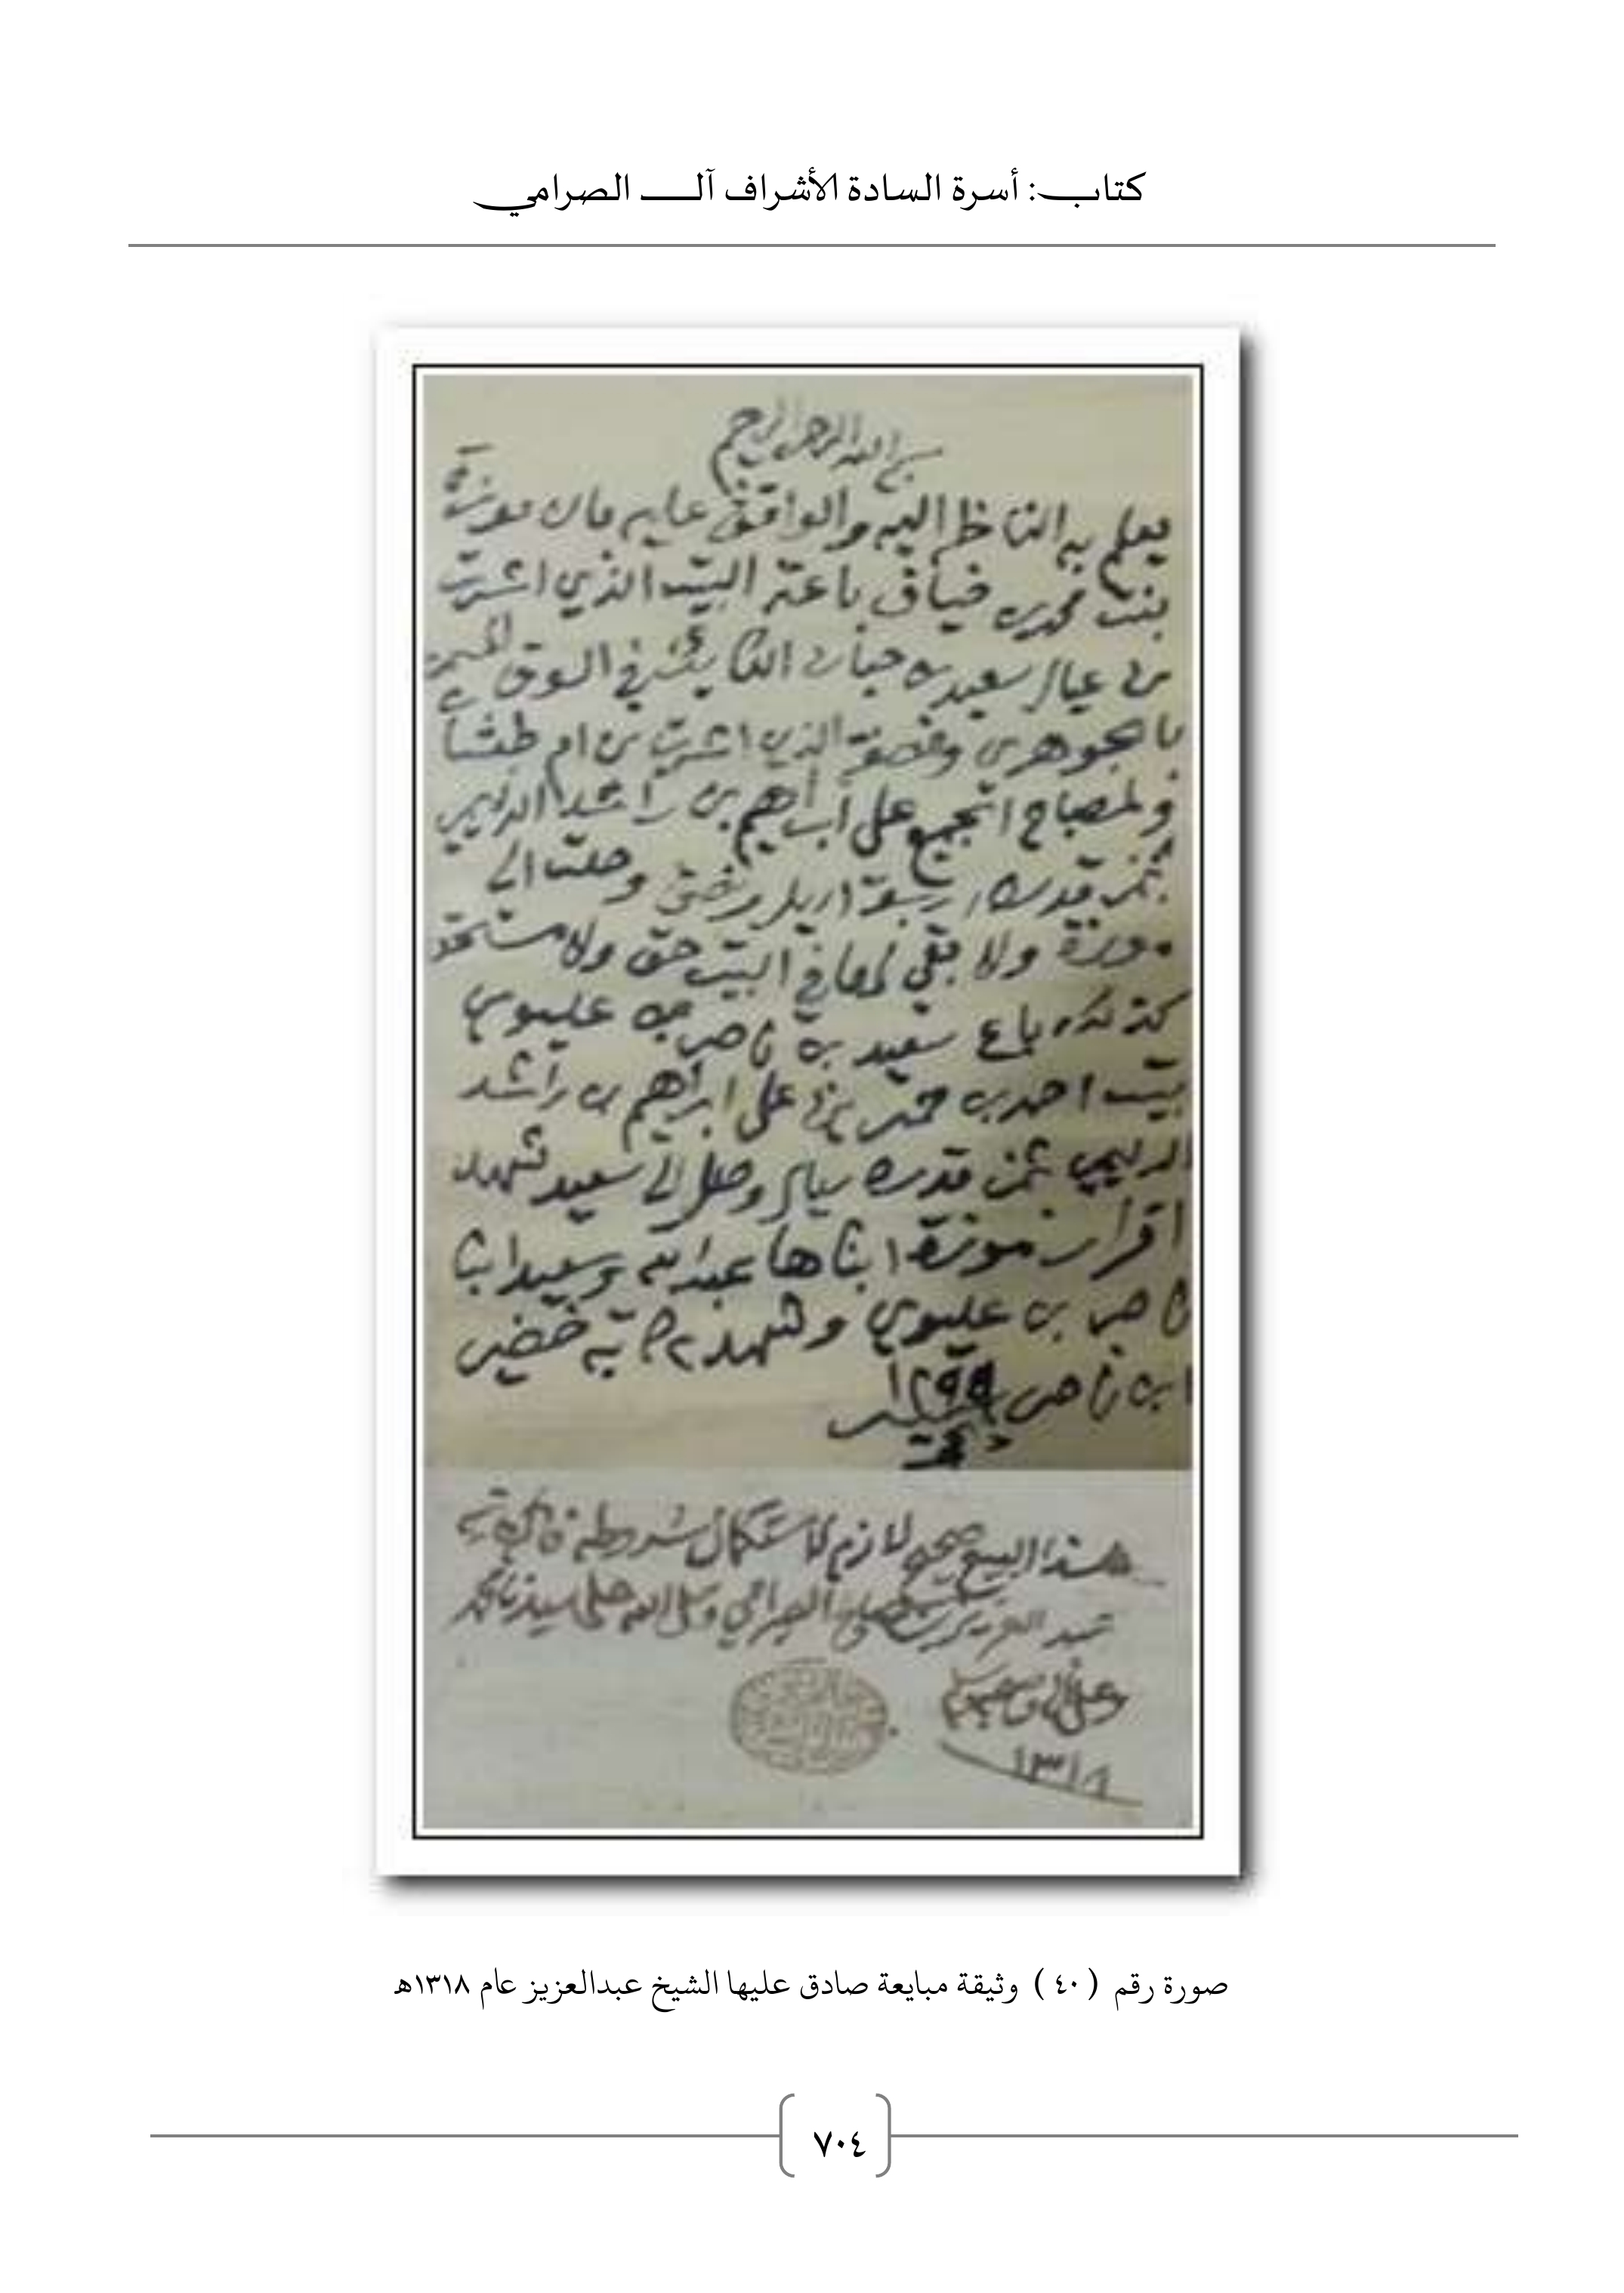 كتاب: أسرة السادة الأشراف آل الصرامي
بسم الله الرحمن الرحيم
يعلم به الناظر اليه والواقف عليه بان موزة
بنت محمد بن ضياف باعت البيت الذي اشرت
من عيال سعيد بن الكاين في السوق
الذي اشرت من ام
اتجميع على ابراهيم بن راشد
بثمن قدره اربعة اريل ونصف وصلت الى
موزة ولا بقي لها في البيت حق ولا
كذلك باع سعيد بن ناصر بن عليوي
بيت احمد بن على ابراهيم بن راشد
ثمن قدره ريال وصل الى سعيد شهد
اقرار موزة ابناها عبدالله وسعيد ابنا
ناصر بن عليوي وشهد به كاتبه خضير
ابن ناصر ١٢٩٩
هذا البيع صحيح لازم لاستكمال شروطه قاله كاتبه
عبد العزيز بن صالح الصرامي وصلى الله على سيدنا محمد
وعلى آله وصحبه وسلم
١٣١٨
صورة رقم (٤٠) وثيقة مبايعة صادق عليها الشيخ عبدالعزيز عام ١٣١٨هـ
٧٠٤